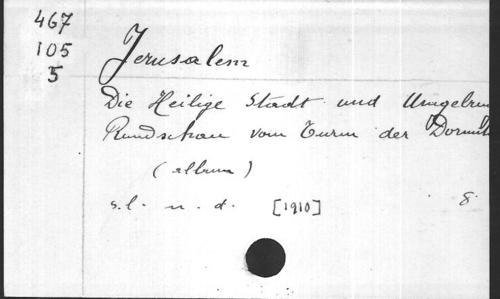 467
105
5
Jerusalem
Die Heilige Stadt und Umgebun
Rundschau vom Turm der Dormit
(album)
s.l. n. d. [1910] 8.